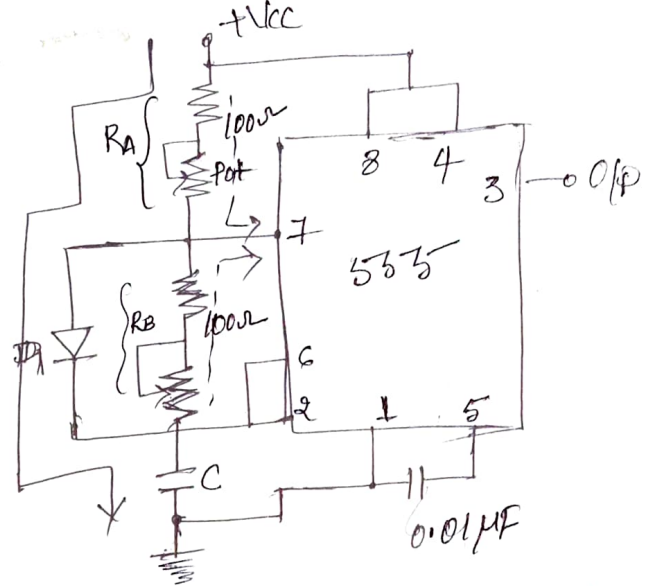 +Vcc
RA
100Ω
Pot
8
4
3
O/P
7
555
RB
100Ω
D1
6
2
1
5
C
0.01µF